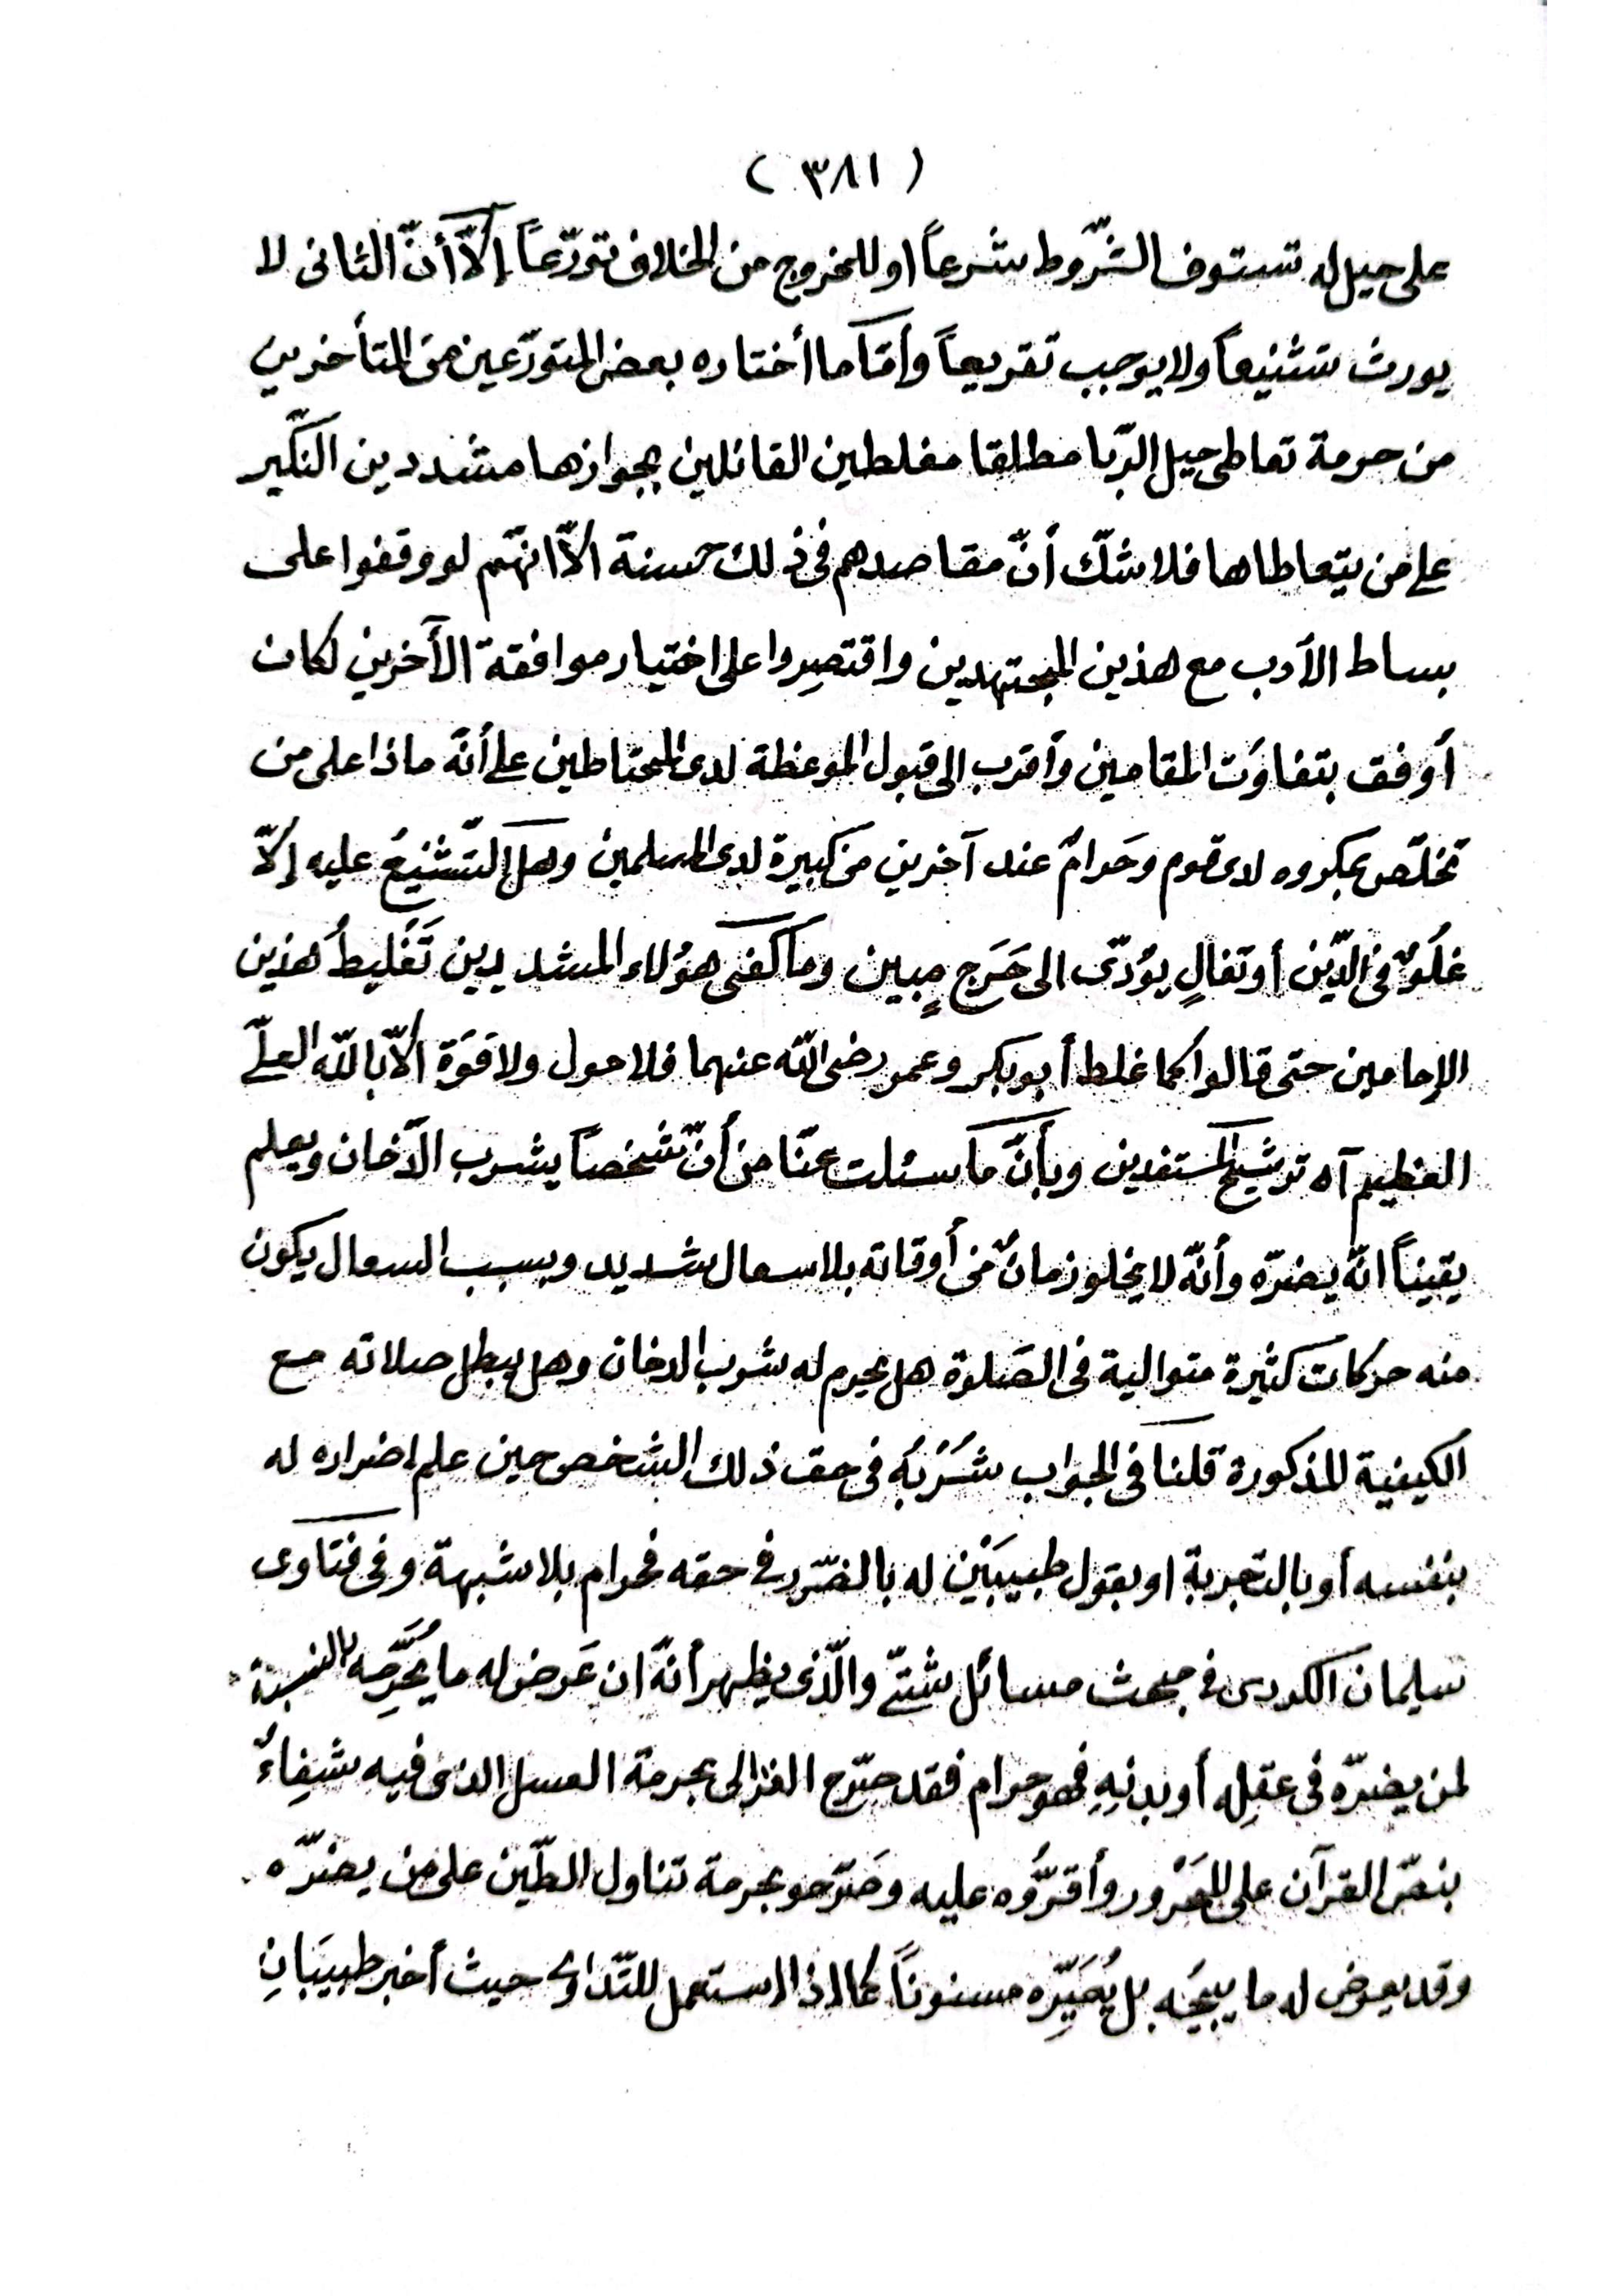 ( ٣٨١ )
على حيل له تستوف الشّروط شرعاً او للخروج من الخلاف تورّعاً إلاّ أنّ الثانى لا
يورث تشنيعاً ولا يوجب تقريعاً وأمّا ما أختاره بعض المتورّعين من المتأخرين
من حرمة تعاطى حيل الرّبا مطلقا مغلطين القائلين بجوازها مشددين النّكير
على من يتعاطاها فلا شكّ أنّ مقاصدهم فى ذلك حسنة الاّ انهّم لو وقفوا على
بساط الأدب مع هذين المجتهدين واقتصروا على اختيار موافقة الآخرين لكان
أوفق بتفاوَت المقامين وأقرب الى قبول الموعظة لدى المحتاطين على أنّه ماذا على من
تخلّص بمكروه لدى قوم وحَرامٌ عند آخرين من كبيرة لدى المسلمين وهل التّشنيعُ عليه إلاّ
غلُوٌّ فى الدّين أو تغالٍ يؤدّى الى حَرَج مبين وما كفى هؤلاء المشديدين تَغْليطُ هذين
الإمامين حتى قالوا كما غلط أبو بكر وعمر رضى الله عنهما فلا حول ولا قوّة الاّ بالله العلىّ
العظيم آه ترشيح المستفدين وبأنّ ما سئلت عنّا من أنّ شخصاً يشرب الدّخان ويعلم
يقيناً انّه يضرّه وأنّه لا يخلو زمانٌ من أوقاته بلا سعال شديد وبسبب السعال يكون
منه حركات كثيرة متوالية فى الصّلوة هل يحرم له شرب الدخان وهل يبطل صلاته مع
الكيفية المذكورة قلنا فى الجواب شُرْبُه فى حق ذلك الشخص حين علم اضراره له
بنفسه أو بالتجربة او بقول طبيبَيْن له بالضّرر فى حقه فحرام بلا شبهة وفى فتاوى
سليمان الكردى فى مبحث مسائل شتىّ والّذى يظهر أنّه ان عَرض له ما يُحَرِّمه بالنسبة
لمن يضرّه فى عقلِه أو بدنِهِ فهو حرام فقد صرّح الغزالى بحرمة العسل الذى فيه شفاءٌ
بنصّ القرآن على المحْرُور وأقرُّوه عليه وصَرّحو بحرمة تناول الطّين على من يضرّه
وقد يعرض له ما يبيحُه بل يُصَيِّره مسنوناً كما اذا استعمل للتّداوى حيث أخبر طبيبَانِ